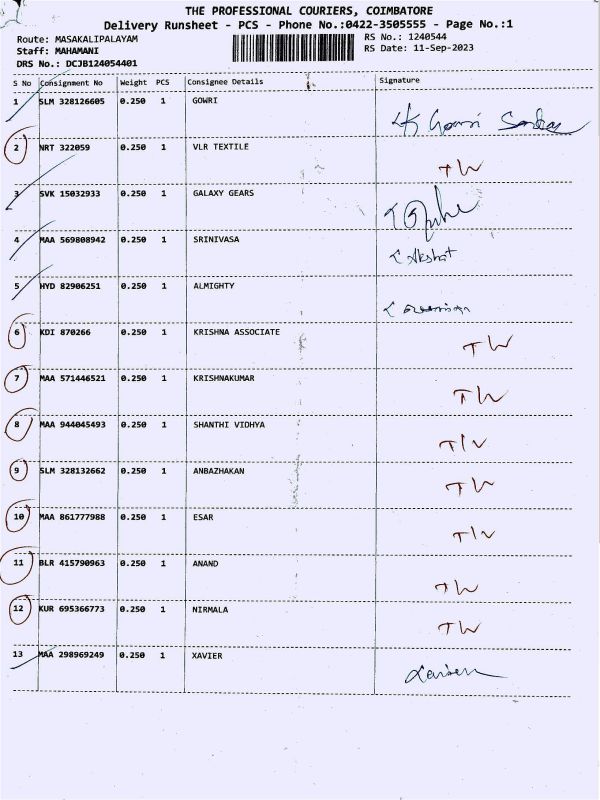 THE PROFESSIONAL COURIERS, COIMBATORE
Delivery Runsheet - PCS - Phone No.:0422-3505555 - Page No.:1
Route: MASAKALIPALAYAM RS No.: 1240544
Staff: MAHAMANI RS Date: 11-Sep-2023
DRS No.: DCJB124054401
S No Consignment No Weight PCS Consignee Details Signature
1 SLM 328126605 0.250 1 GOWRI
2 NRT 322059 0.250 1 VLR TEXTILE TW
3 SVK 15032933 0.250 1 GALAXY GEARS
4 MAA 569808942 0.250 1 SRINIVASA Akshat
5 HYD 82906251 0.250 1 ALMIGHTY
6 KDI 870266 0.250 1 KRISHNA ASSOCIATE TW
7 MAA 571446521 0.250 1 KRISHNAKUMAR TW
8 MAA 944045493 0.250 1 SHANTHI VIDHYA TW
9 SLM 328132662 0.250 1 ANBAZHAKAN TW
10 MAA 861777988 0.250 1 ESAR TW
11 BLR 415790963 0.250 1 ANAND TW
12 KUR 695366773 0.250 1 NIRMALA TW
13 MAA 298969249 0.250 1 XAVIER